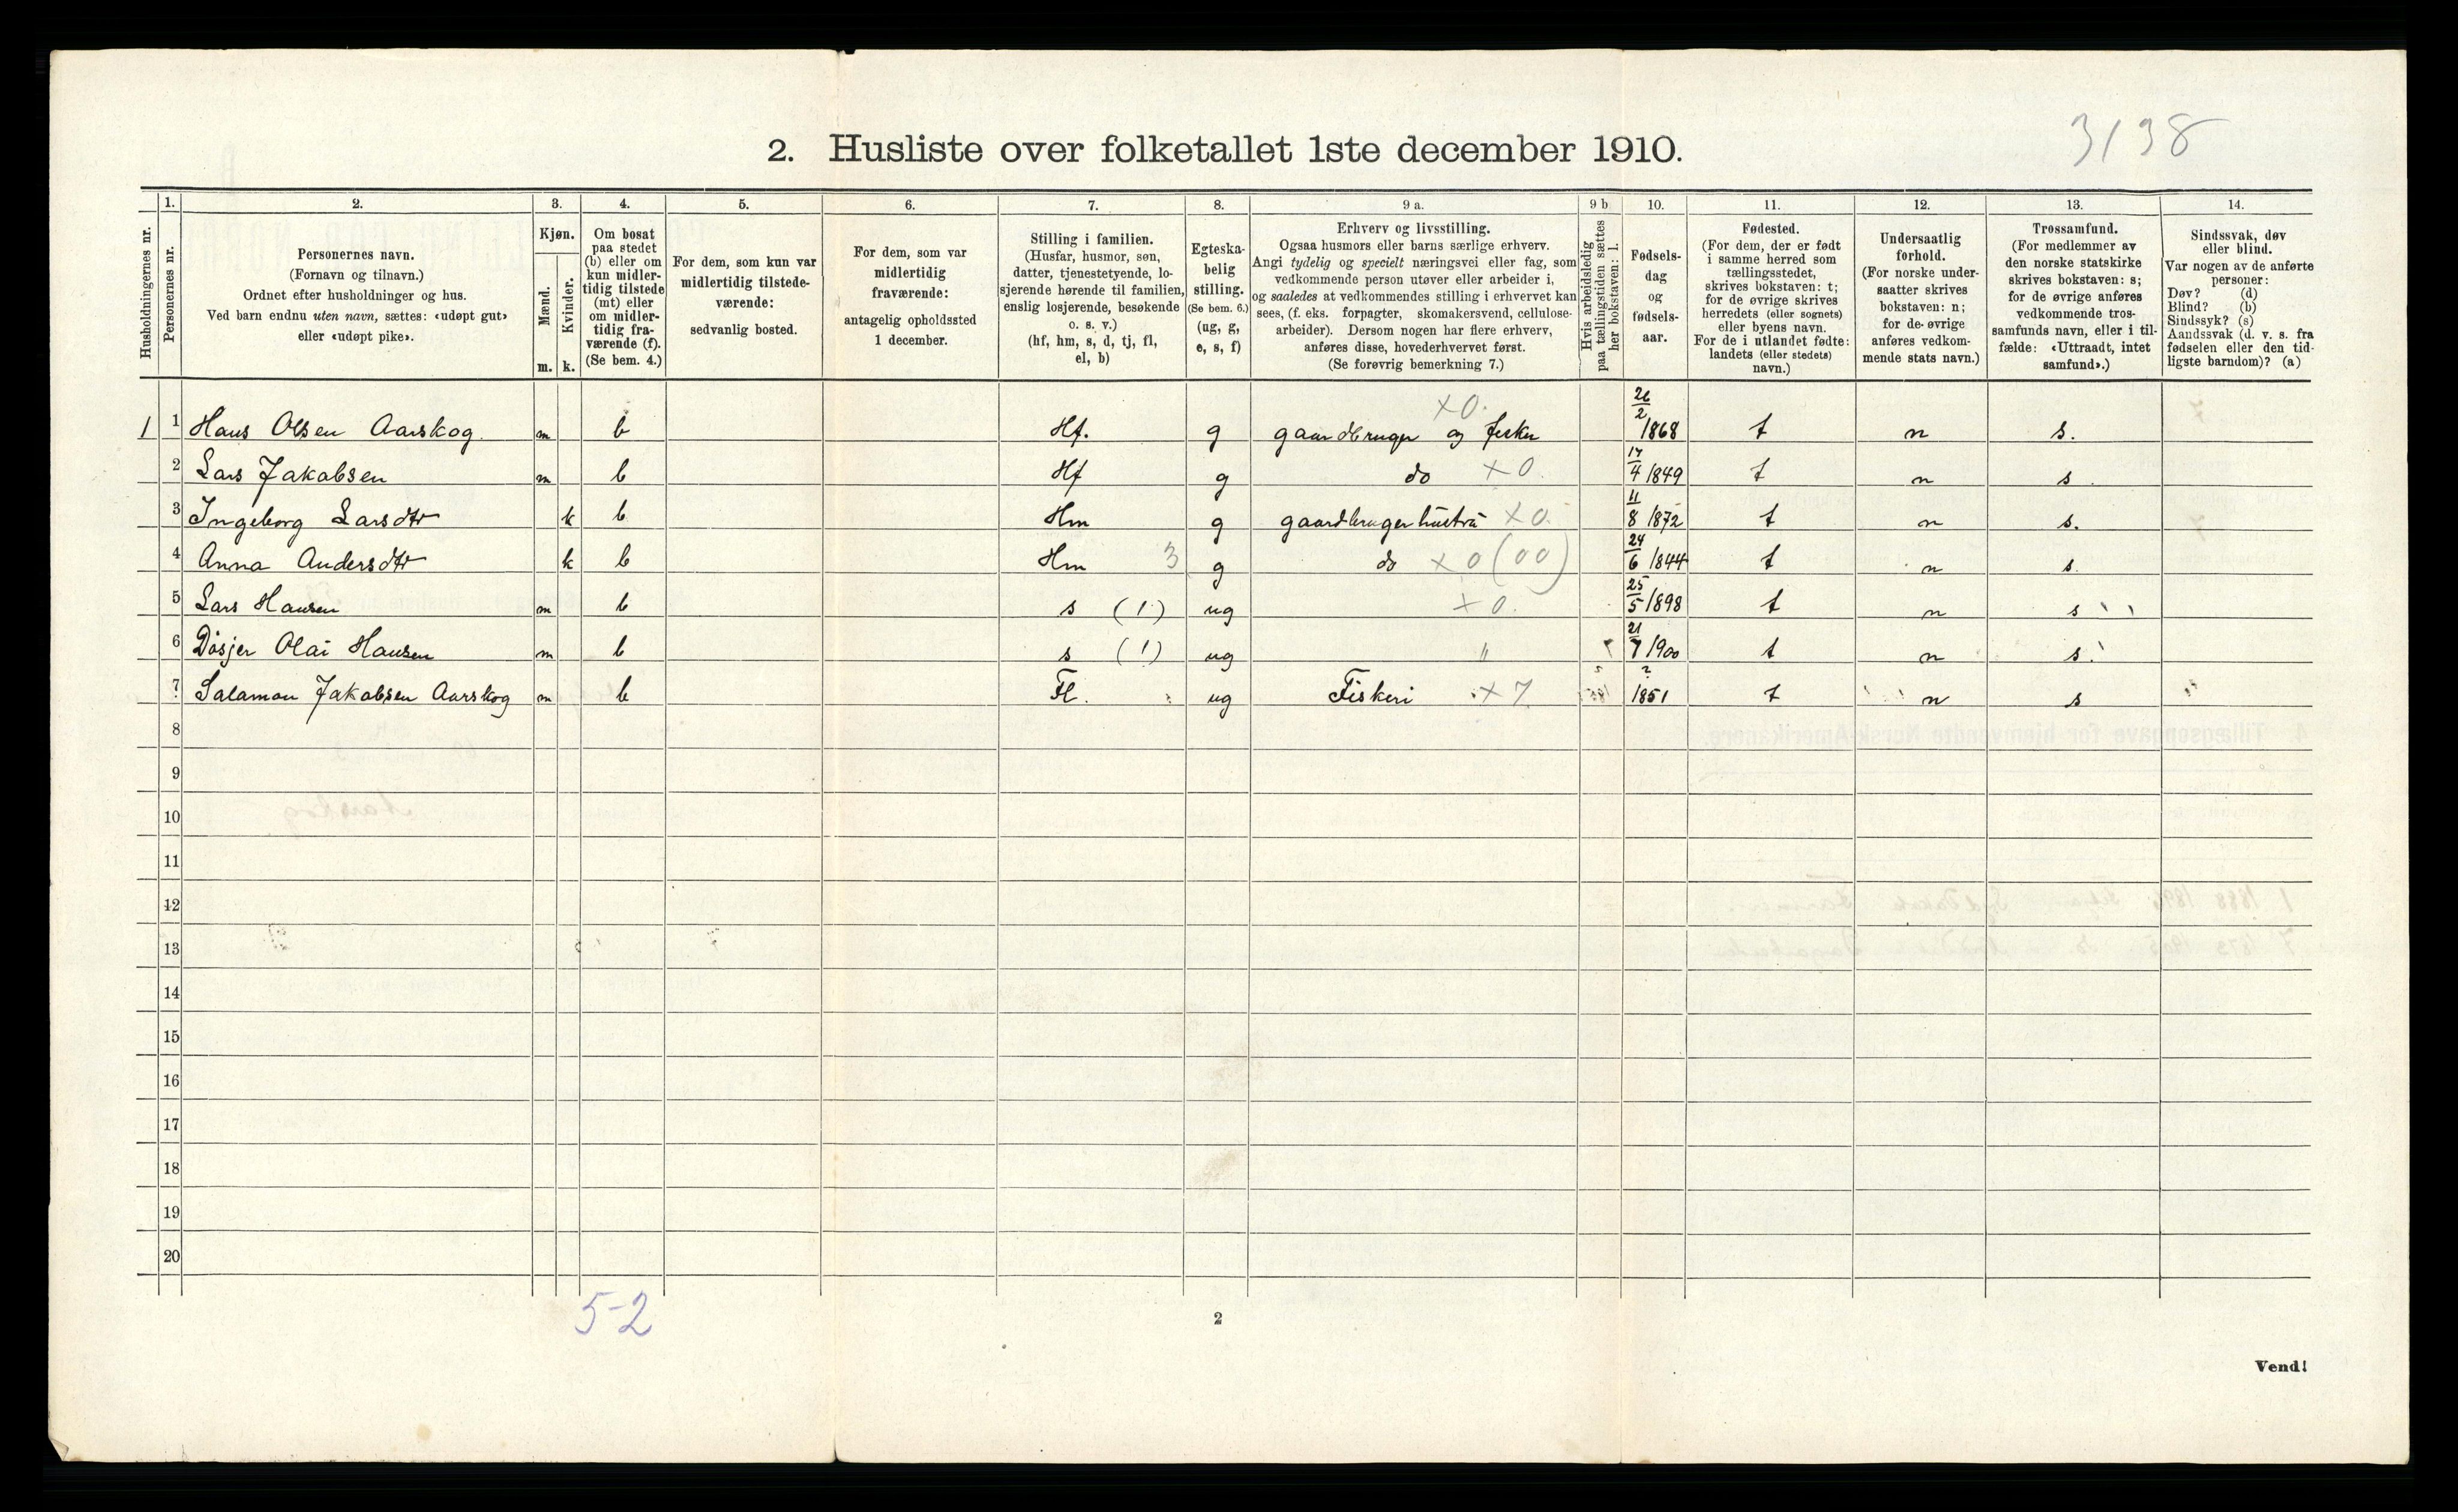 3138
2. Husliste over folketallet 1ste december 1910.
Husholdningernes nr.
1.
Personernes nr.
2.
Personernes navn.
(Fornavn og tilnavn.)
Ordnet efter husholdninger og hus.
Ved barn endnu uten navn, sættes: «udøpt gut»
eller «udøpt pike».
3.
Kjøn.
Mænd.
Kvinder.
m. k.
4.
Om bosat
paa stedet
(b) eller om
kun midler-
tidig tilstede
(mt) eller
om midler-
tidig fra-
værende (f).
(Se bem. 4.)
5.
For dem, som kun var
midlertidig tilstede-
værende:
sedvanlig bosted.
6.
For dem, som var
midlertidig
fraværende:
antagelig opholdssted
1 december.
7.
Stilling i familien.
(Husfar, husmor, søn,
datter, tjenestetyende, lo-
sjerende hørende til familien,
enslig losjerende, besøkende
o. s. v.)
(hf, hm, s, d, tj, fl,
el, b)
8.
Egteska-
belig
stilling.
(Se bem. 6.)
(ug, g,
e, s, f)
9 a.
Erhverv og livsstilling.
Ogsaa husmors eller barns særlige erhverv.
Angi tydelig og specielt næringsvei eller fag, som
vedkommende person utøver eller arbeider i,
og saaledes at vedkommendes stilling i erhvervet kan
sees, (f. eks. forpagter, skomakersvend, cellulose-
arbeider). Dersom nogen har flere erhverv,
anføres disse, hovederhvervet først.
(Se forøvrig bemerkning 7.)
9 b
Hvis arbeidsledig
paa tællingstiden sættes
her bokstaven: l.
10.
Fødsels-
dag
og
fødsels-
aar.
11.
Fødested.
(For dem, der er født
i samme herred som
tællingsstedet,
skrives bokstaven: t;
for de øvrige skrives
herredets (eller sognets)
eller byens navn.
For de i utlandet fødte:
landets (eller stedets)
navn.)
12.
Undersaatlig
forhold.
(For norske under-
saatter skrives
bokstaven: n;
for de øvrige
anføres vedkom-
mende stats navn.)
13.
Trossamfund.
(For medlemmer av
den norske statskirke
skrives bokstaven: s;
for de øvrige anføres
vedkommende tros-
samfunds navn, eller i til-
fælde: «Uttraadt, intet
samfund».)
14.
Sindssvak, døv
eller blind.
Var nogen av de anførte
personer:
Døv? (d)
Blind? (b)
Sindssyk? (s)
Aandssvak (d. v. s. fra
fødselen eller den tid-
ligste barndom)? (a)
1 1 Hans Olsen Aarskog. m b Hf. g gaardbruger og fisker x0. 26/2 1868 t n s.
2 Lars Jakobsen m b Hf g do x0. 17/4 1849 t n s
3 Ingeborg Larsdtr k b Hm g gaardbrugerhustru x0. 11/8 1872 t n s.
4 Anna Andersdtr k b Hm 3 g do x0 (00) 24/6 1844 t n s
5 Lars Hansen m b s (1) ug x0. 25/5 1898 t n s
6 Døsjer Olai Hansen m b s (1) ug " 21/7 1900 t n s
7 Salamon Jakobsen Aarskog m b Fl. ug Fiskeri x7. ? 1851 t n s
8
9
10
11
12
13
14
15
16
17
18
19
20
5-2
2
Vend!